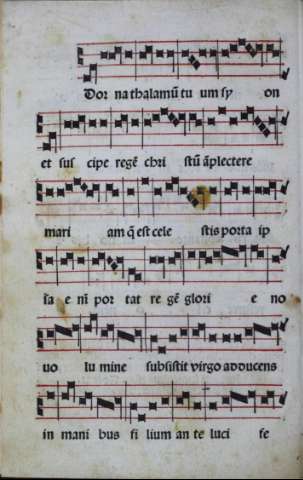 Dor na thalamū tu um sy on
et sus cipe regē chri stū āplectere
mari am q̄ est cele stis porta ip
sa e nī por tat re gē glori e no
uo lu mine subsistit virgo adducens
in mani bus fi lium an te luci fe